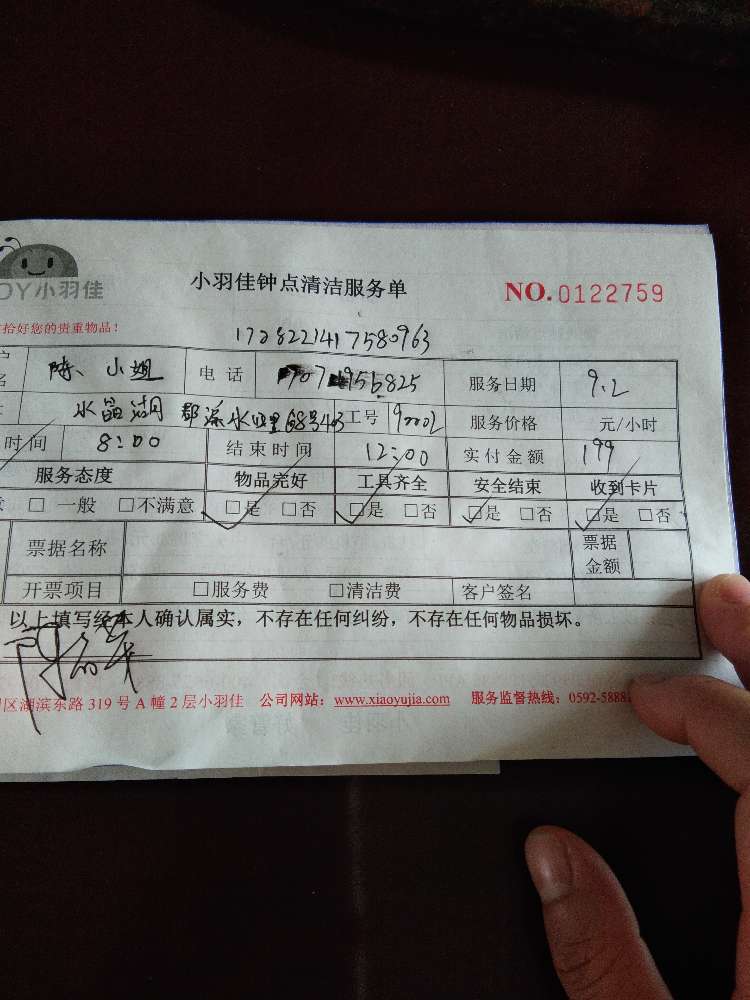 小羽佳钟点清洁服务单
NO.0122759
OY小羽佳
拾好您的贵重物品！
1728221417580963
名 陈、小姐 电话 956825 服务日期 9.2
水晶湖郡 68号403 工号 90002 服务价格 元/小时
时间 8:00 结束时间 12:00 实付金额 199
服务态度 物品完好 工具齐全 安全结束 收到卡片
□ 一般 □不满意 □是 □否 □是 □否 □是 □否 □是 □否
票据名称 票据金额
开票项目 □服务费 □清洁费 客户签名
以上填写经本人确认属实，不存在任何纠纷，不存在任何物品损坏。
区湖滨东路 319 号 A 幢 2 层小羽佳 公司网站：www.xiaoyujia.com 服务监督热线：0592-5888